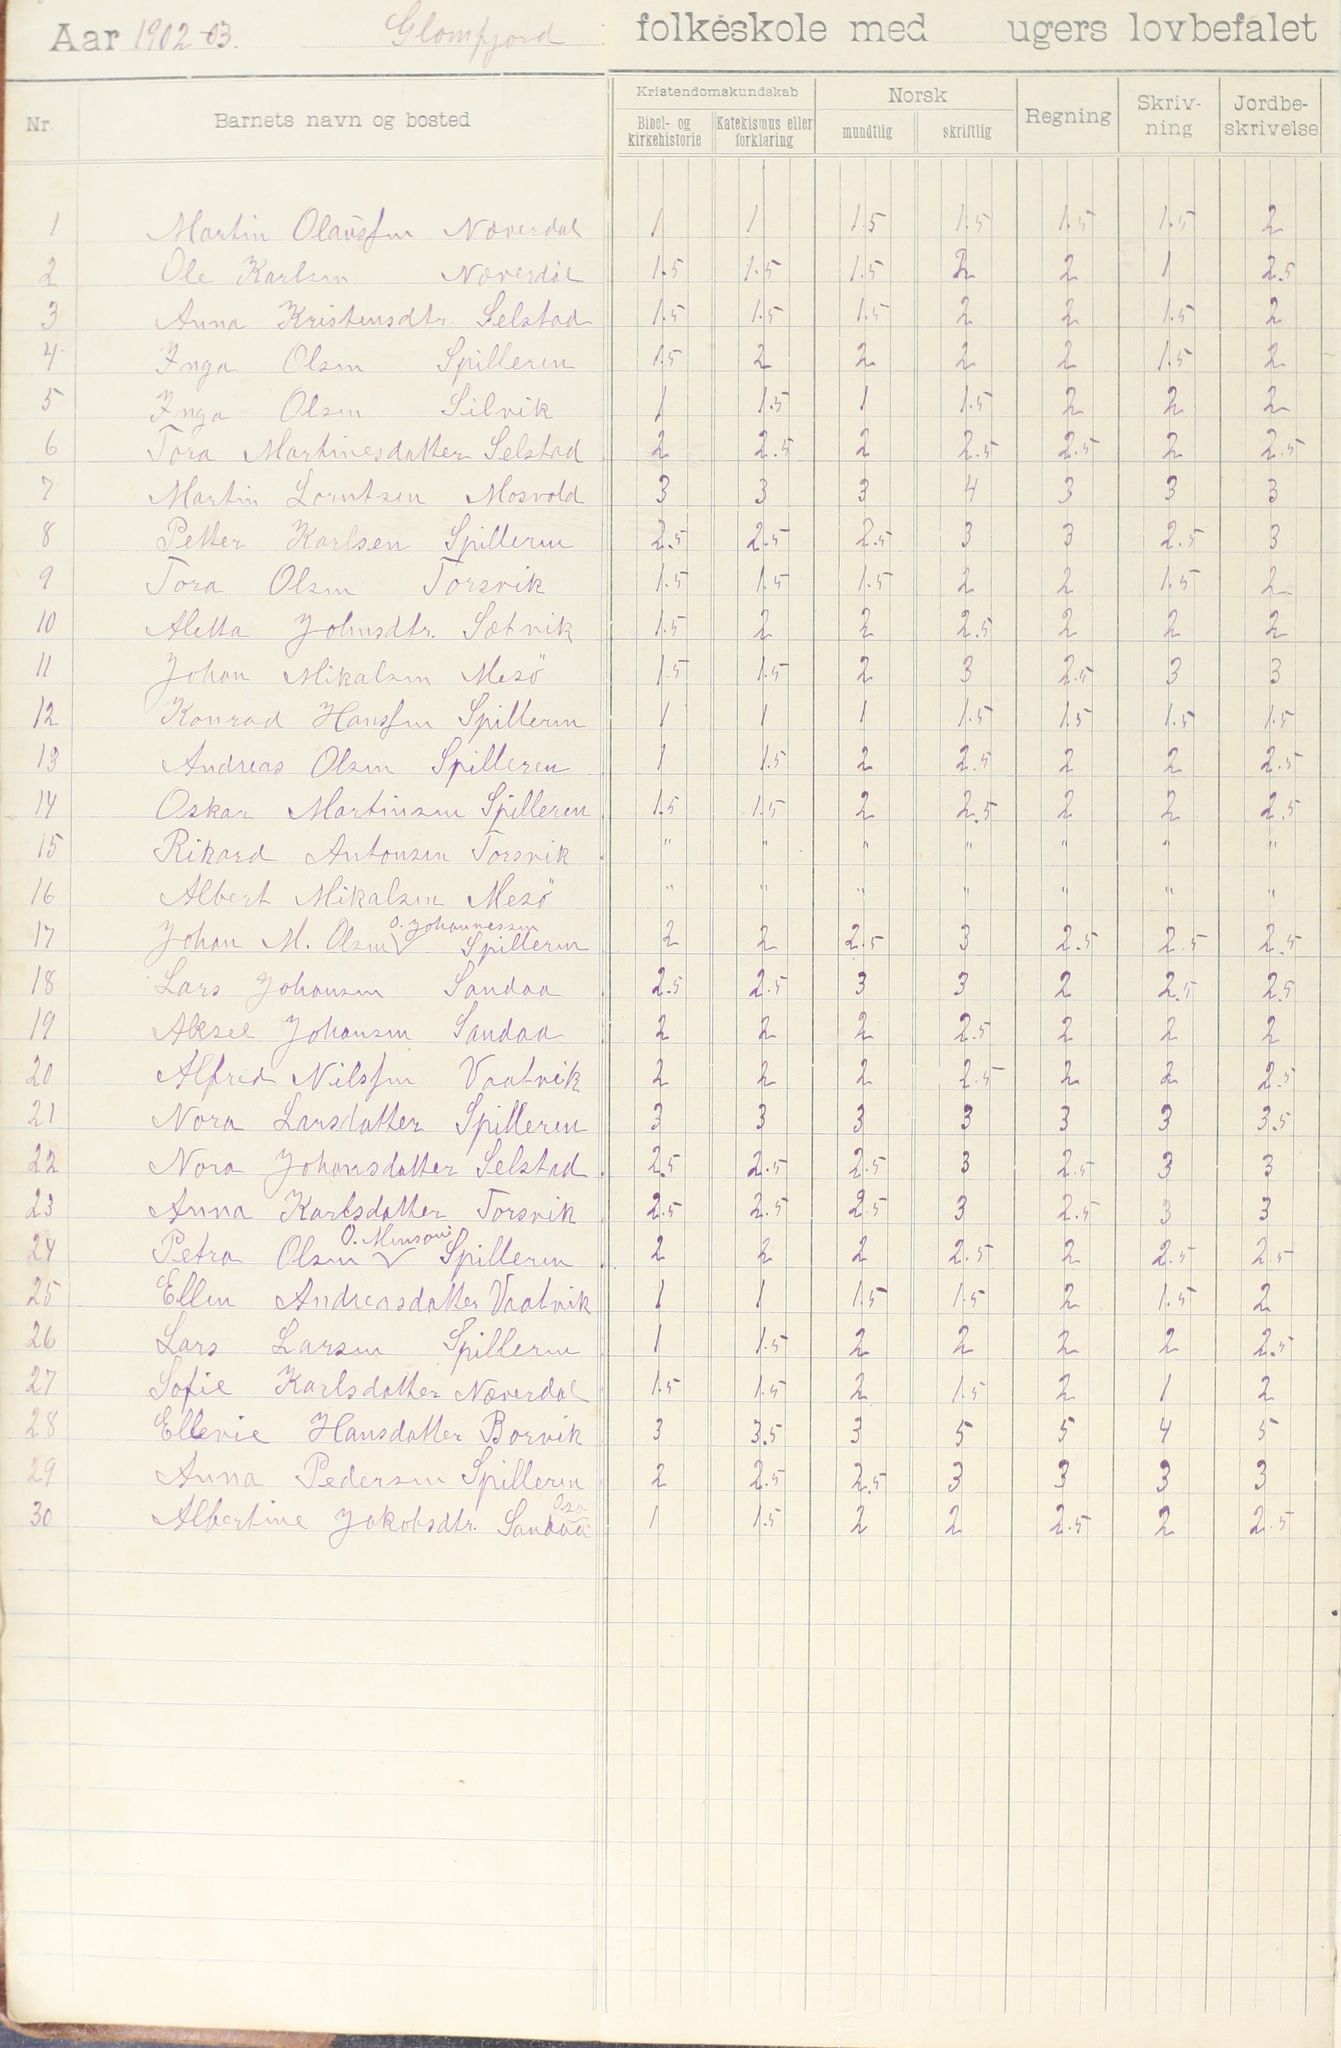 Aar 1902-03. Glomfjord folkeskole med ugers lovbefalet
Nr. Barnets navn og bosted Kristendomskundskab Norsk Regning Skriv-ning Jordbe-skrivelse
Bibel- og kirkehistorie Katekismus eller forklaring mundtlig skriftlig
1 Martin Olaussen Næverdal 1 1 1.5 1.5 1.5 1.5 2
2 Ole Karlsen Næverdal 1.5 1.5 1.5 2 2 1 2.5
3 Anna Kristensdtr. Selstad 1.5 1.5 1.5 2 2 1.5 2
4 Inga Olsen Spilleren 1.5 2 2 2 2 1.5 2
5 Inga Olsen Silvik 1 1.5 1 1.5 2 2 2
6 Tora Martinesdatter Selstad 2 2.5 2 2.5 2.5 2 2.5
7 Martin Lorntsen Mosvold 3 3 3 4 3 3 3
8 Petter Karlsen Spilleren 2.5 2.5 2.5 3 3 2.5 3
9 Tora Olsen Torsvik 1.5 1.5 1.5 2 2 1.5 2
10 Aletta Johnsdtr. Sætvik 1.5 2 2 2.5 2 2 2
11 Johan Mikalsen Mesö 1.5 1.5 2 3 2.5 3 3
12 Konrad Hanssen Spilleren 1 1 1 1.5 1.5 1.5 1.5
13 Andreas Olsen Spilleren 1 1.5 2 2.5 2 2 2.5
14 Oskar Martinsen Spilleren 1.5 1.5 2 2.5 2 2 2.5
15 Rikard Antonsen Torsvik " " " " " " "
16 Albert Mikalsen Mesö " " " " " " "
O. Johannessen
17 Johan M. Olsen Spilleren 2 2 2.5 3 2.5 2.5 2.5
18 Lars Johansen Sandaa 2.5 2.5 3 3 2 2.5 2.5
19 Aksel Johansen Sandaa 2 2 2 2.5 2 2 2
20 Alfred Nilssen Vaatvik 2 2 2 2.5 2 2 2.5
21 Nora Larsdatter Spilleren 3 3 3 3 3 3 3.5
22 Nora Johansdatter Selstad 2.5 2.5 2.5 3 2.5 3 3
23 Anna Karlsdatter Torsvik 2.5 2.5 2.5 3 2.5 3 3
24 Petra Olsen Spilleren 2 2 2 2.5 2 2.5 2.5
25 Ellen Andreasdatter Vaatvik 1 1 1.5 1.5 2 1.5 2
26 Lars Larsen Spilleren 1 1.5 2 2 2 2 2.5
27 Sofie Karlsdatter Næverdal 1.5 1.5 2 1.5 2 1 2
28 Ellevie Hansdatter Borvik 3 3.5 3 5 5 4 5
29 Anna Pedersen Spilleren 2 2.5 2.5 3 3 3 3
30 Albertine Jakobsdtr. Sandaa 1 1.5 2 2 2.5 2 2.5